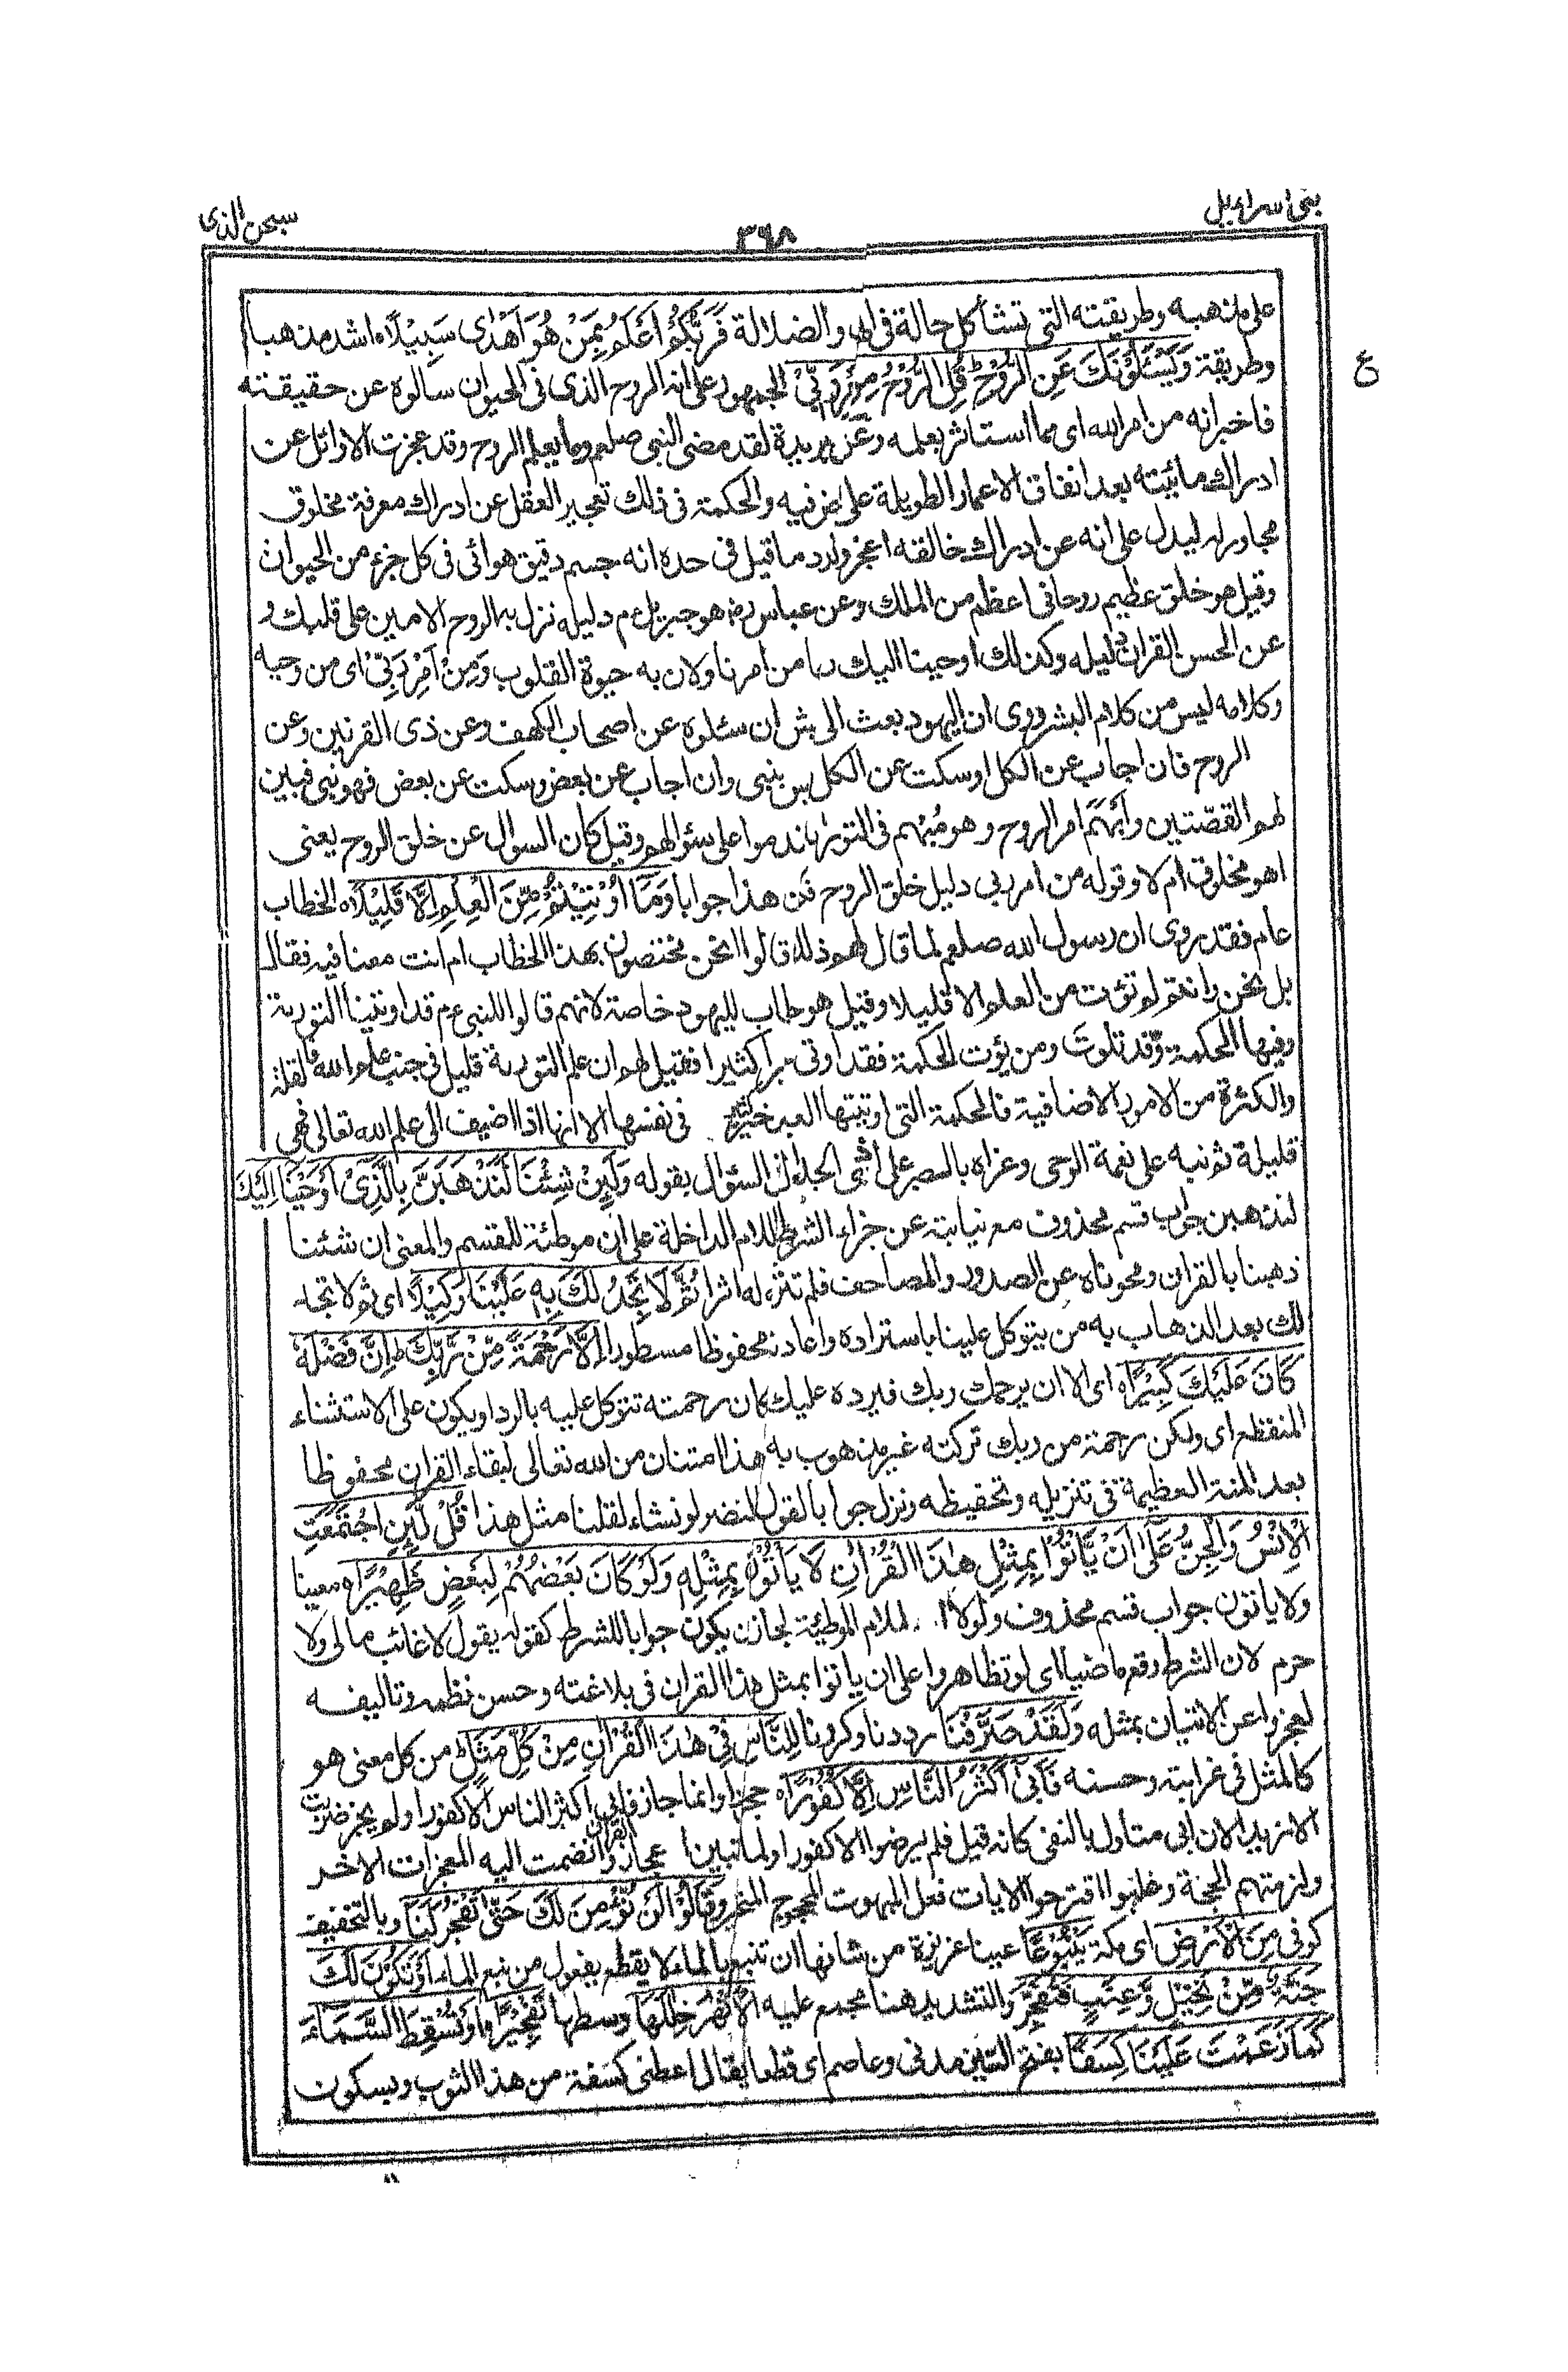 بنی اسراءیل
٣٦٨
سبحن الذی
علی مذهبه وطریقته التی تشاکل حالة فی الهدی والضلالة فَرَبُّكُمْ أَعْلَمُ بِمَنْ هُوَ اَهْدٰی سَبِیْلًا۝ اشد مذهبا
ع
وطریقة وَیَسْئَلُوْنَكَ عَنِ الرُّوْحِ ؕ قُلِ الرُّوْحُ مِنْ اَمْرِ رَبِّیْ الجمهور علی انه الروح الذی فی الحیوان سالوه عن حقیقته
فاخبر انه من امر الله ای مما استاثر بعلمه وعن بریدة لقد مضی النبی صلعم وما یعلم الروح وقد عجزت الاوائل عن
ادراك مائیته بعد انفاق الاعمار الطویلة علی الخوض فیه والحکمة فی ذلك تعجیز العقل عن ادراك معرفة مخلوق
مجاور له لیدل علی انه عن ادراك خالقه اعجز ولرد ما قیل فی حده انه جسم دقیق هوائی فی کل جزء من الحیوان
وقیل هو خلق عظیم روحانی اعظم من الملك وعن عباس رض هو جبریل ع م دلیله نزل به الروح الامین علی قلبك و
عن الحسن القران دلیله وکذلك اوحینا الیك روحا من امرنا ولان به حیوة القلوب وَمِنْ اَمْرِ رَبِّیْ ای من وحیه
وکلامه لیس من کلام البشر وروی ان الیهود بعث الی قریش ان سئلوه عن اصحاب الکهف وعن ذی القرنین وعن
الروح فان اجاب عن الکل اوسکت عن الکل فلیس بنبی وان اجاب عن بعض وسکت عن بعض فهو نبی فبین
لهم القصّتین وأَبْهَمَ امر الروح وهو مُبْهَم فی التوراة فندموا علی سئوالهم وقیل کان السوال عن خلق الروح یعنی
اهو مخلوق ام لا وقوله من امر ربی دلیل خلق الروح فکان هذا جوابا وَمَا اُوْتِیْتُمْ مِّنَ الْعِلْمِ اِلَّا قَلِیْلًا۝ الخطاب
عام فقد روی ان رسول الله صلعم لما قال لهم ذلك قالوا انحن مختصون بهذا الخطاب ام انت معنا فیه فقال
بل نحن وانتم لم نؤت من العلم الا قلیلا وقیل هو خطاب للیهود خاصة لانهم قالوا للنبی ع م قد اوتینا التوریة
وفیها الحکمة وقد تلوت ومن یؤت الحکمة فقد اوتی خیرا کثیرا فقیل لهم ان علم التوریة قلیل فی جنب علم الله فالقلة
والکثرة من الامور الاضافیة فالحکمة التی اوتیتها العبد خیر کثیر فی نفسها الا انها اذا اضیف الی علم الله تعالی فهی
قلیلة ثم نبه علی نعمة الوحی وعزاه بالصبر علی اذی الجدال فی السؤال بقوله وَلَئِنْ شِئْنَا لَنَذْهَبَنَّ بِالَّذِیْ اَوْحَیْنَا اِلَیْكَ
لنذهبن جواب قسم محذوف مع نیابته عن جزاء الشرط واللام الداخلة علی ان موطئة للقسم والمعنی ان شئنا
ذهبنا بالقران ومحوناه عن الصدور والمصاحف فلم تترك له اثرا ثُمَّ لَا تَجِدُ لَكَ بِهٖ عَلَیْنَا وَكِیْلًا ای ثم لا تجد
لك بعد الذهاب به من یتوکل علینا باسترداده واعادته محفوظا مسطورا اِلَّا رَحْمَةً مِّنْ رَّبِّكَ ؕ اِنَّ فَضْلَهٗ
كَانَ عَلَیْكَ كَبِیْرًا۝ ای الا ان یرحمك ربك فیرده علیك کان رحمته تتوکل علیه بالرد او یکون علی الاستثناء
المنقطع ای ولکن رحمة من ربك ترکته غیر مذهوب به هذا امتنان من الله تعالی لبقاء القران محفوظا
بعد المنة العظیمة فی تنزیله وتحفیظه ونزل جوابا لقول النضر لو نشاء لقلنا مثل هذا قُلْ لَّئِنِ اجْتَمَعَتِ
الْاِنْسُ وَالْجِنُّ عَلٰی اَنْ یَّاْتُوْا بِمِثْلِ هٰذَا الْقُرْاٰنِ لَا یَاْتُوْنَ بِمِثْلِهٖ وَلَوْ كَانَ بَعْضُهُمْ لِبَعْضٍ ظَهِیْرًا۝ معینا
ولا یاتون جواب قسم محذوف ولولا اللام الموطئة لجاز ان یکون جوابا للشرط کقوله یقول لا غائب مالی ولا
حرم لان الشرط وقع ماضیا ای لو تظاهروا علی ان یاتوا بمثل هذا القران فی بلاغته وحسن نظمه وتالیفه
لعجزوا عن الاتیان بمثله وَلَقَدْ صَرَّفْنَا رددنا وکررنا لِلنَّاسِ فِیْ هٰذَا الْقُرْاٰنِ مِنْ كُلِّ مَثَلٍ من کل معنی هو
کالمثل فی غرابته وحسنه فَاَبٰۤی اَكْثَرُ النَّاسِ اِلَّا كُفُوْرًا۝ جحودا وانما جاز فابی اکثر الناس الا کفورا ولم یجز ضربت
الا زیدا لان ابی متاول بالنفی کانه قیل فلم یرضوا الا کفورا ولما تبین اعجاز القران وانضمت الیه المعجزات الاخر
ولزمتهم الحجة وغلبوا اقترحوا الایات فعل المبهوت المحجوج المتحیر وَقَالُوْا لَنْ نُّؤْمِنَ لَكَ حَتّٰی تَفْجُرَ لَنَا وبالتخفیف
کوفی مِنَ الْاَرْضِ ای مکة یَنْۢبُوْعًا عینا غزیرة من شانها ان تنبع بالماء لا یقطع یفعول من نبع الماء اَوْ تَكُوْنَ لَكَ
جَنَّةٌ مِّنْ نَّخِیْلٍ وَّعِنَبٍ فَتُفَجِّرَ والتشدید هنا مجمع علیه الْاَنْهٰرَ خِلٰلَهَا وسطها تَفْجِیْرًا۝ اَوْ تُسْقِطَ السَّمَآءَ
كَمَا زَعَمْتَ عَلَیْنَا كِسَفًا بفتح السین مدنی وعاصم ای قطعا یقال اعطنی کسفة من هذا الثوب وبسکون